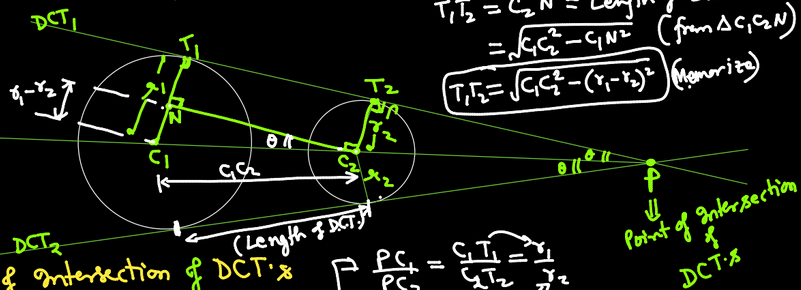 DCT₁
T₁T₂ = C₂N = Length of
= √C₁C₂² − C₁N² (from ΔC₁C₂N)
T₁T₂ = √C₁C₂² − (r₁−r₂)² (Memorize)
T₁
T₂
r₁−r₂
r₁
N
r₂
C₁
θ
C₂
θ
θ
P
C₁C₂
r₂
(Length of D.C.T.)
Point of intersection
of
DCT's
DCT₂
of intersection of DCT's
PC₁/PC₂ = C₁T₁/C₂T₂ = r₁/r₂